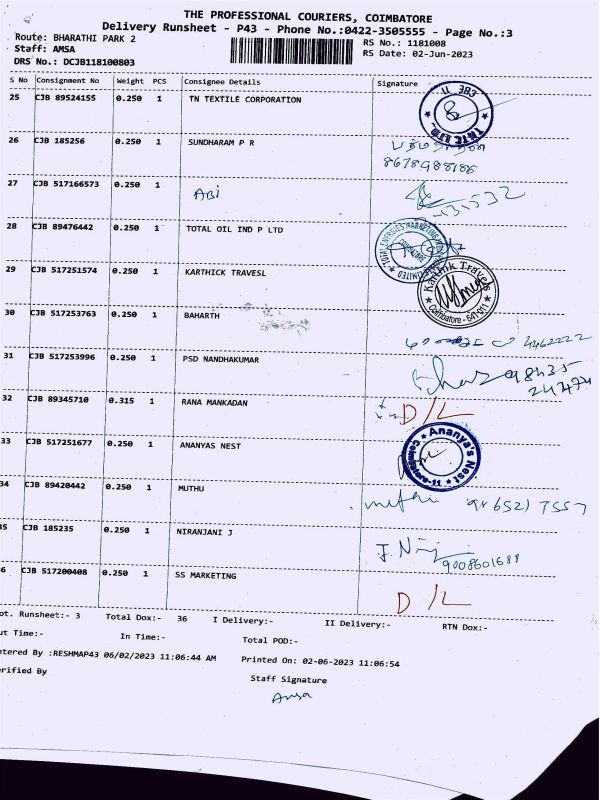 THE PROFESSIONAL COURIERS, COIMBATORE
Delivery Runsheet - P43 - Phone No.:0422-3505555 - Page No.:3
Route: BHARATHI PARK 2
RS No.: 1181008
Staff: AMSA
RS Date: 02-Jun-2023
DRS No.: DCJB118100803
S No Consignment No Weight PCS Consignee Details Signature
25 CJB 89524155 0.250 1 TN TEXTILE CORPORATION
26 CJB 185256 0.250 1 SUNDHARAM P R
8678988186
27 CJB 517166573 0.250 1 ABI
28 CJB 89476442 0.250 1 TOTAL OIL IND P LTD
29 CJB 517251574 0.250 1 KARTHICK TRAVESL
Karthik Travels
Coimbatore - 641 011
30 CJB 517253763 0.250 1 BAHARTH
31 CJB 517253996 0.250 1 PSD NANDHAKUMAR
98435
24474
32 CJB 89345710 0.315 1 RANA MANKADAN D/L
33 CJB 517251677 0.250 1 ANANYAS NEST
Ananya's Nest
Coimbatore-11
34 CJB 89420442 0.250 1 MUTHU
35 CJB 185235 0.250 1 NIRANJANI J
9008601688
6 CJB 517200408 0.250 1 SS MARKETING D/L
ot. Runsheet:- 3 Total Dox:- 36 I Delivery:- II Delivery:- RTN Dox:-
ut Time:- In Time:- Total POD:-
ntered By :RESHMAP43 06/02/2023 11:06:44 AM Printed On: 02-06-2023 11:06:54
erified By Staff Signature
Amsa